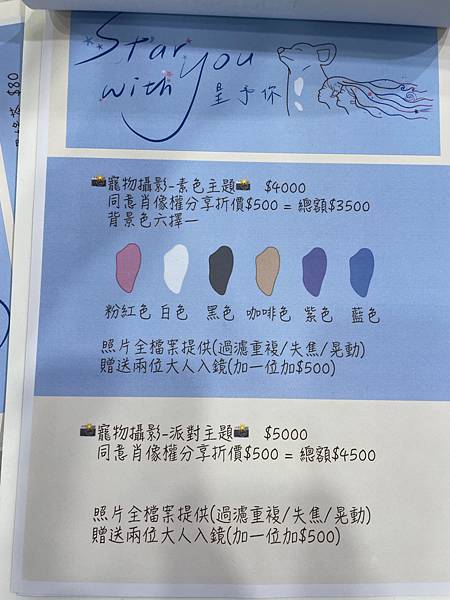 Star
with you
星予你
$80
寵物攝影-素色主題 $4000
同意肖像權分享折價$500 = 總額$3500
背景色六擇一
粉紅色 白色 黑色 咖啡色 紫色 藍色
照片全檔案提供(過濾重複/失焦/晃動)
贈送兩位大人入鏡(加一位加$500)
寵物攝影-派對主題 $5000
同意肖像權分享折價$500 = 總額$4500
照片全檔案提供(過濾重複/失焦/晃動)
贈送兩位大人入鏡(加一位加$500)